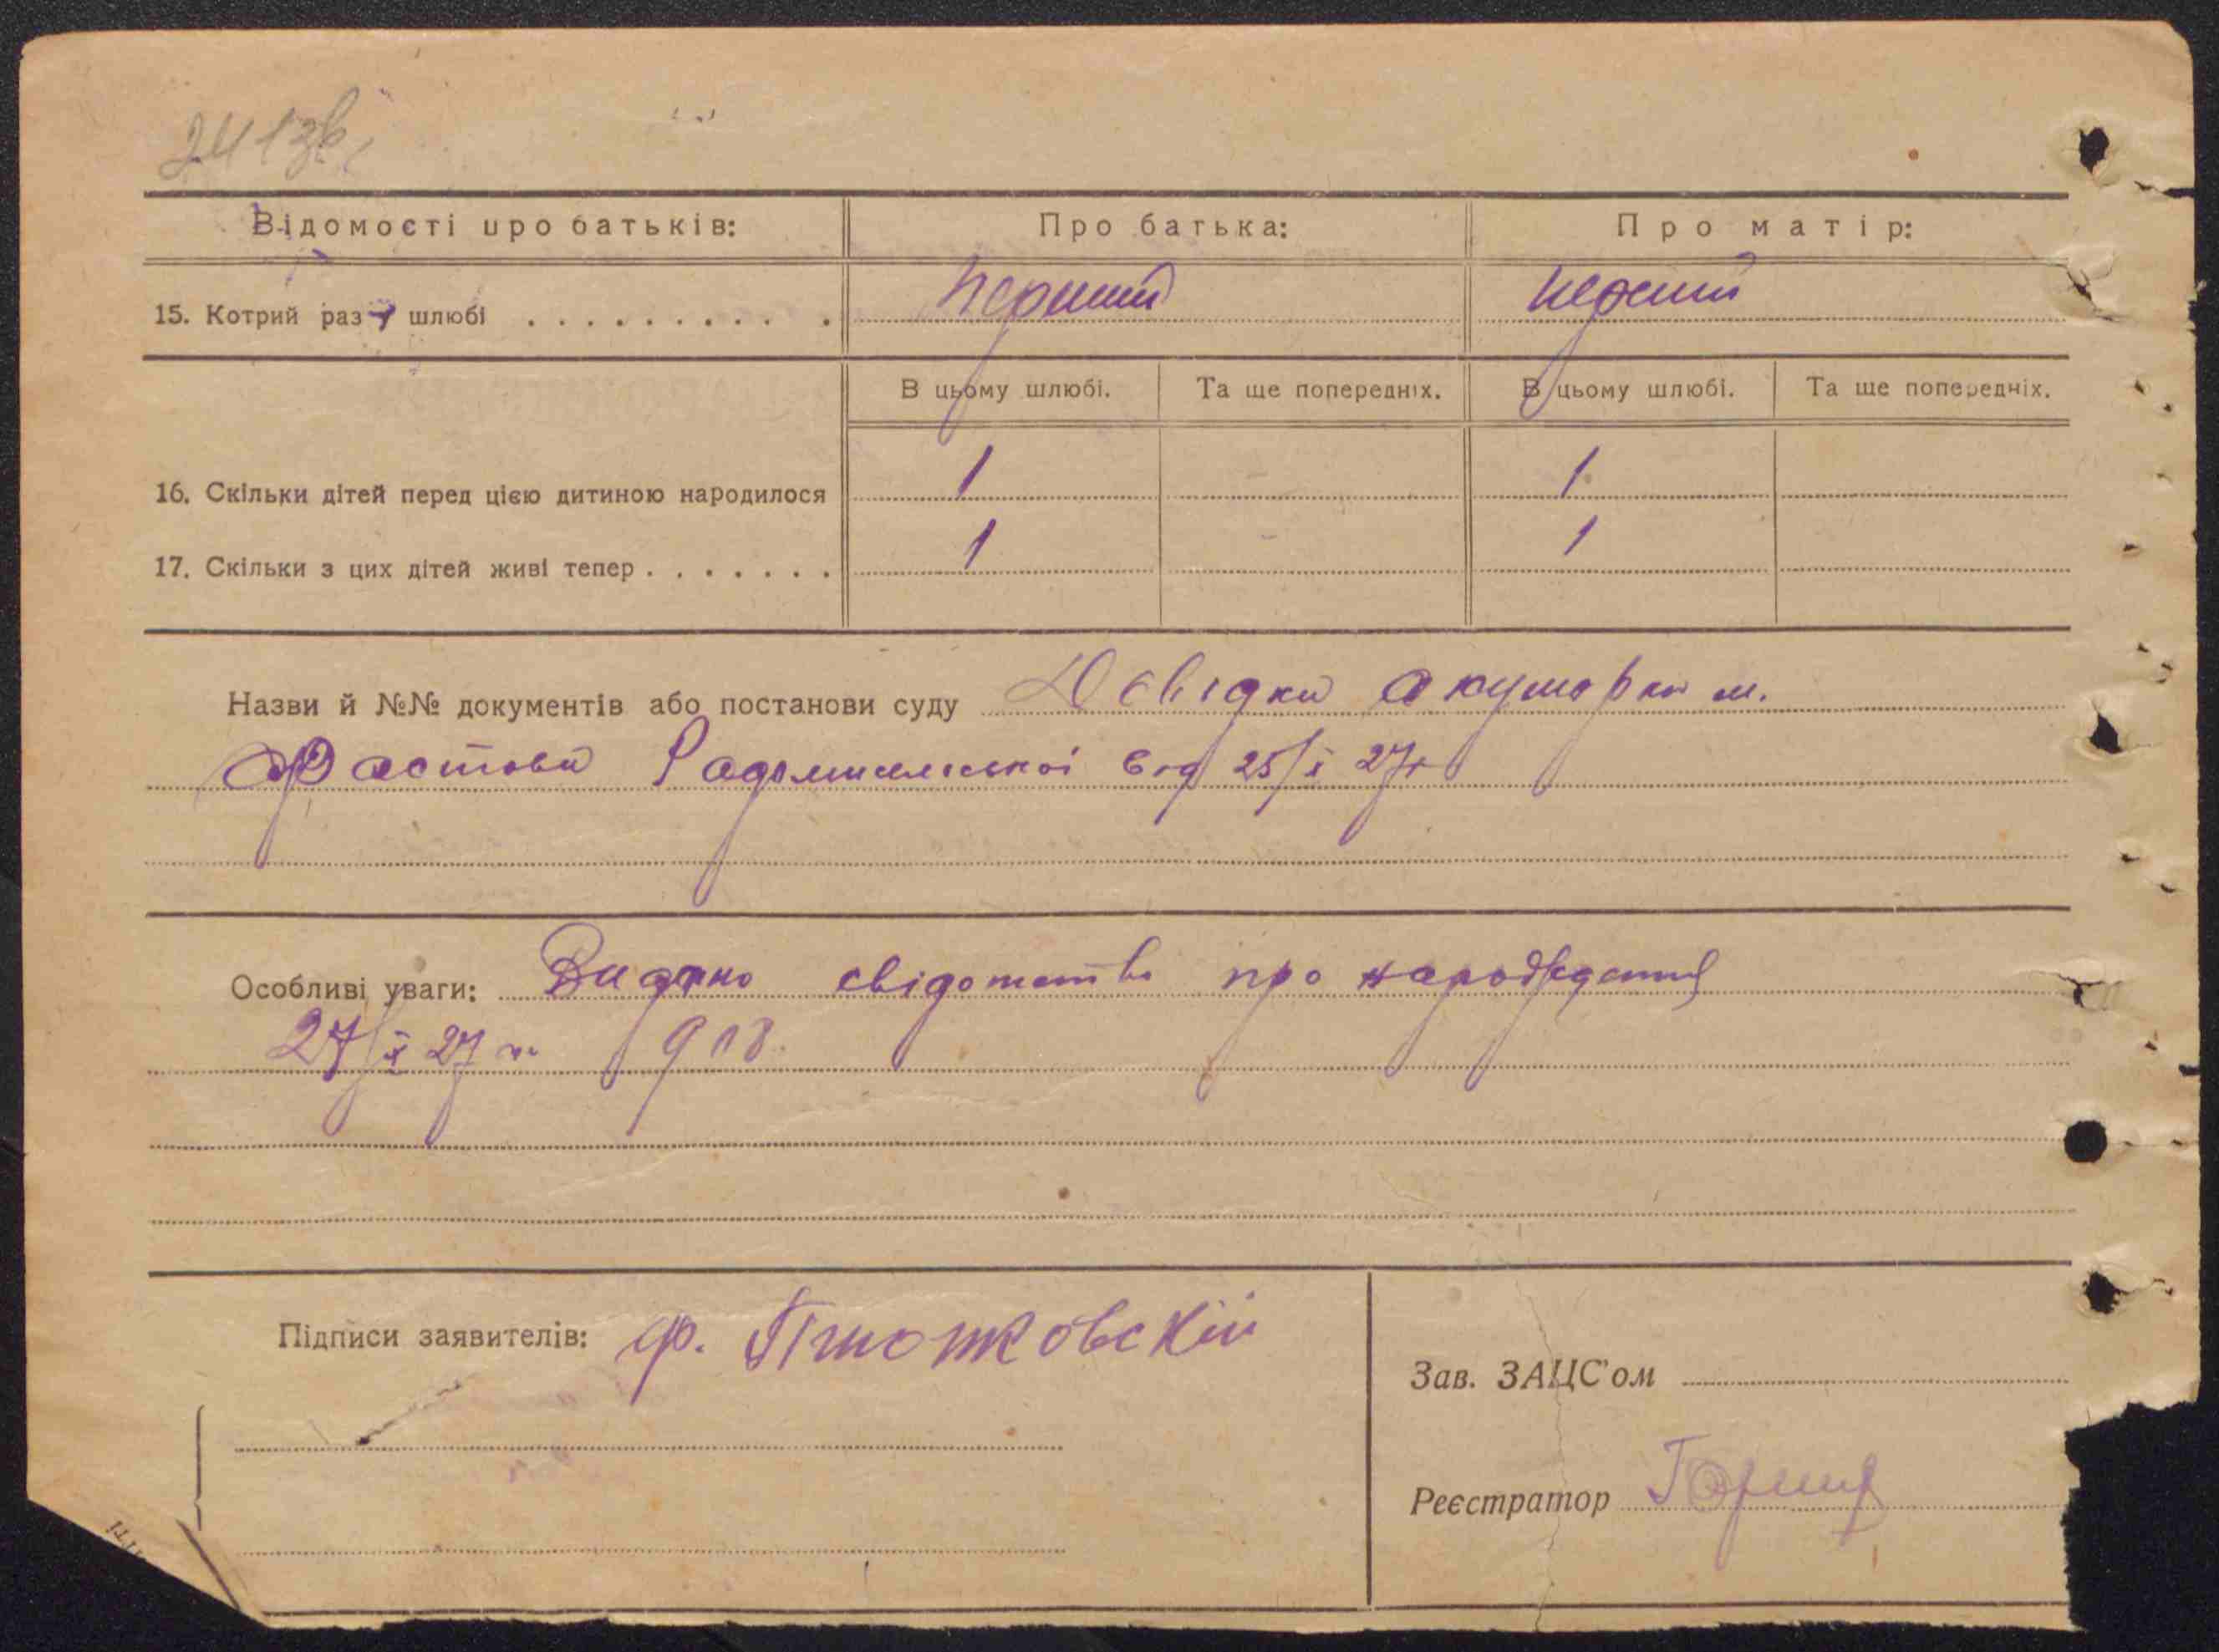 241зв.
Відомості про батьків: Про батька: Про матір:
15. Котрий раз у шлюбі . . . . . . . . . . . Перший Перший
В цьому шлюбі. Та ще попередніх. В цьому шлюбі. Та ще попередніх.
16. Скільки дітей перед цією дитиною народилося 1 1
17. Скільки з цих дітей живі тепер . . . . . . . 1 1
Назви й №№ документів або постанови суду Довідка акушорки м.
Фастова Радомисельської від 25/X 27р
Особливі уваги: Видано свідотство про народження
27/X 27 р. 918.
Підписи заявителів: ф.
Зав. ЗАЦС'ом
Реєстратор